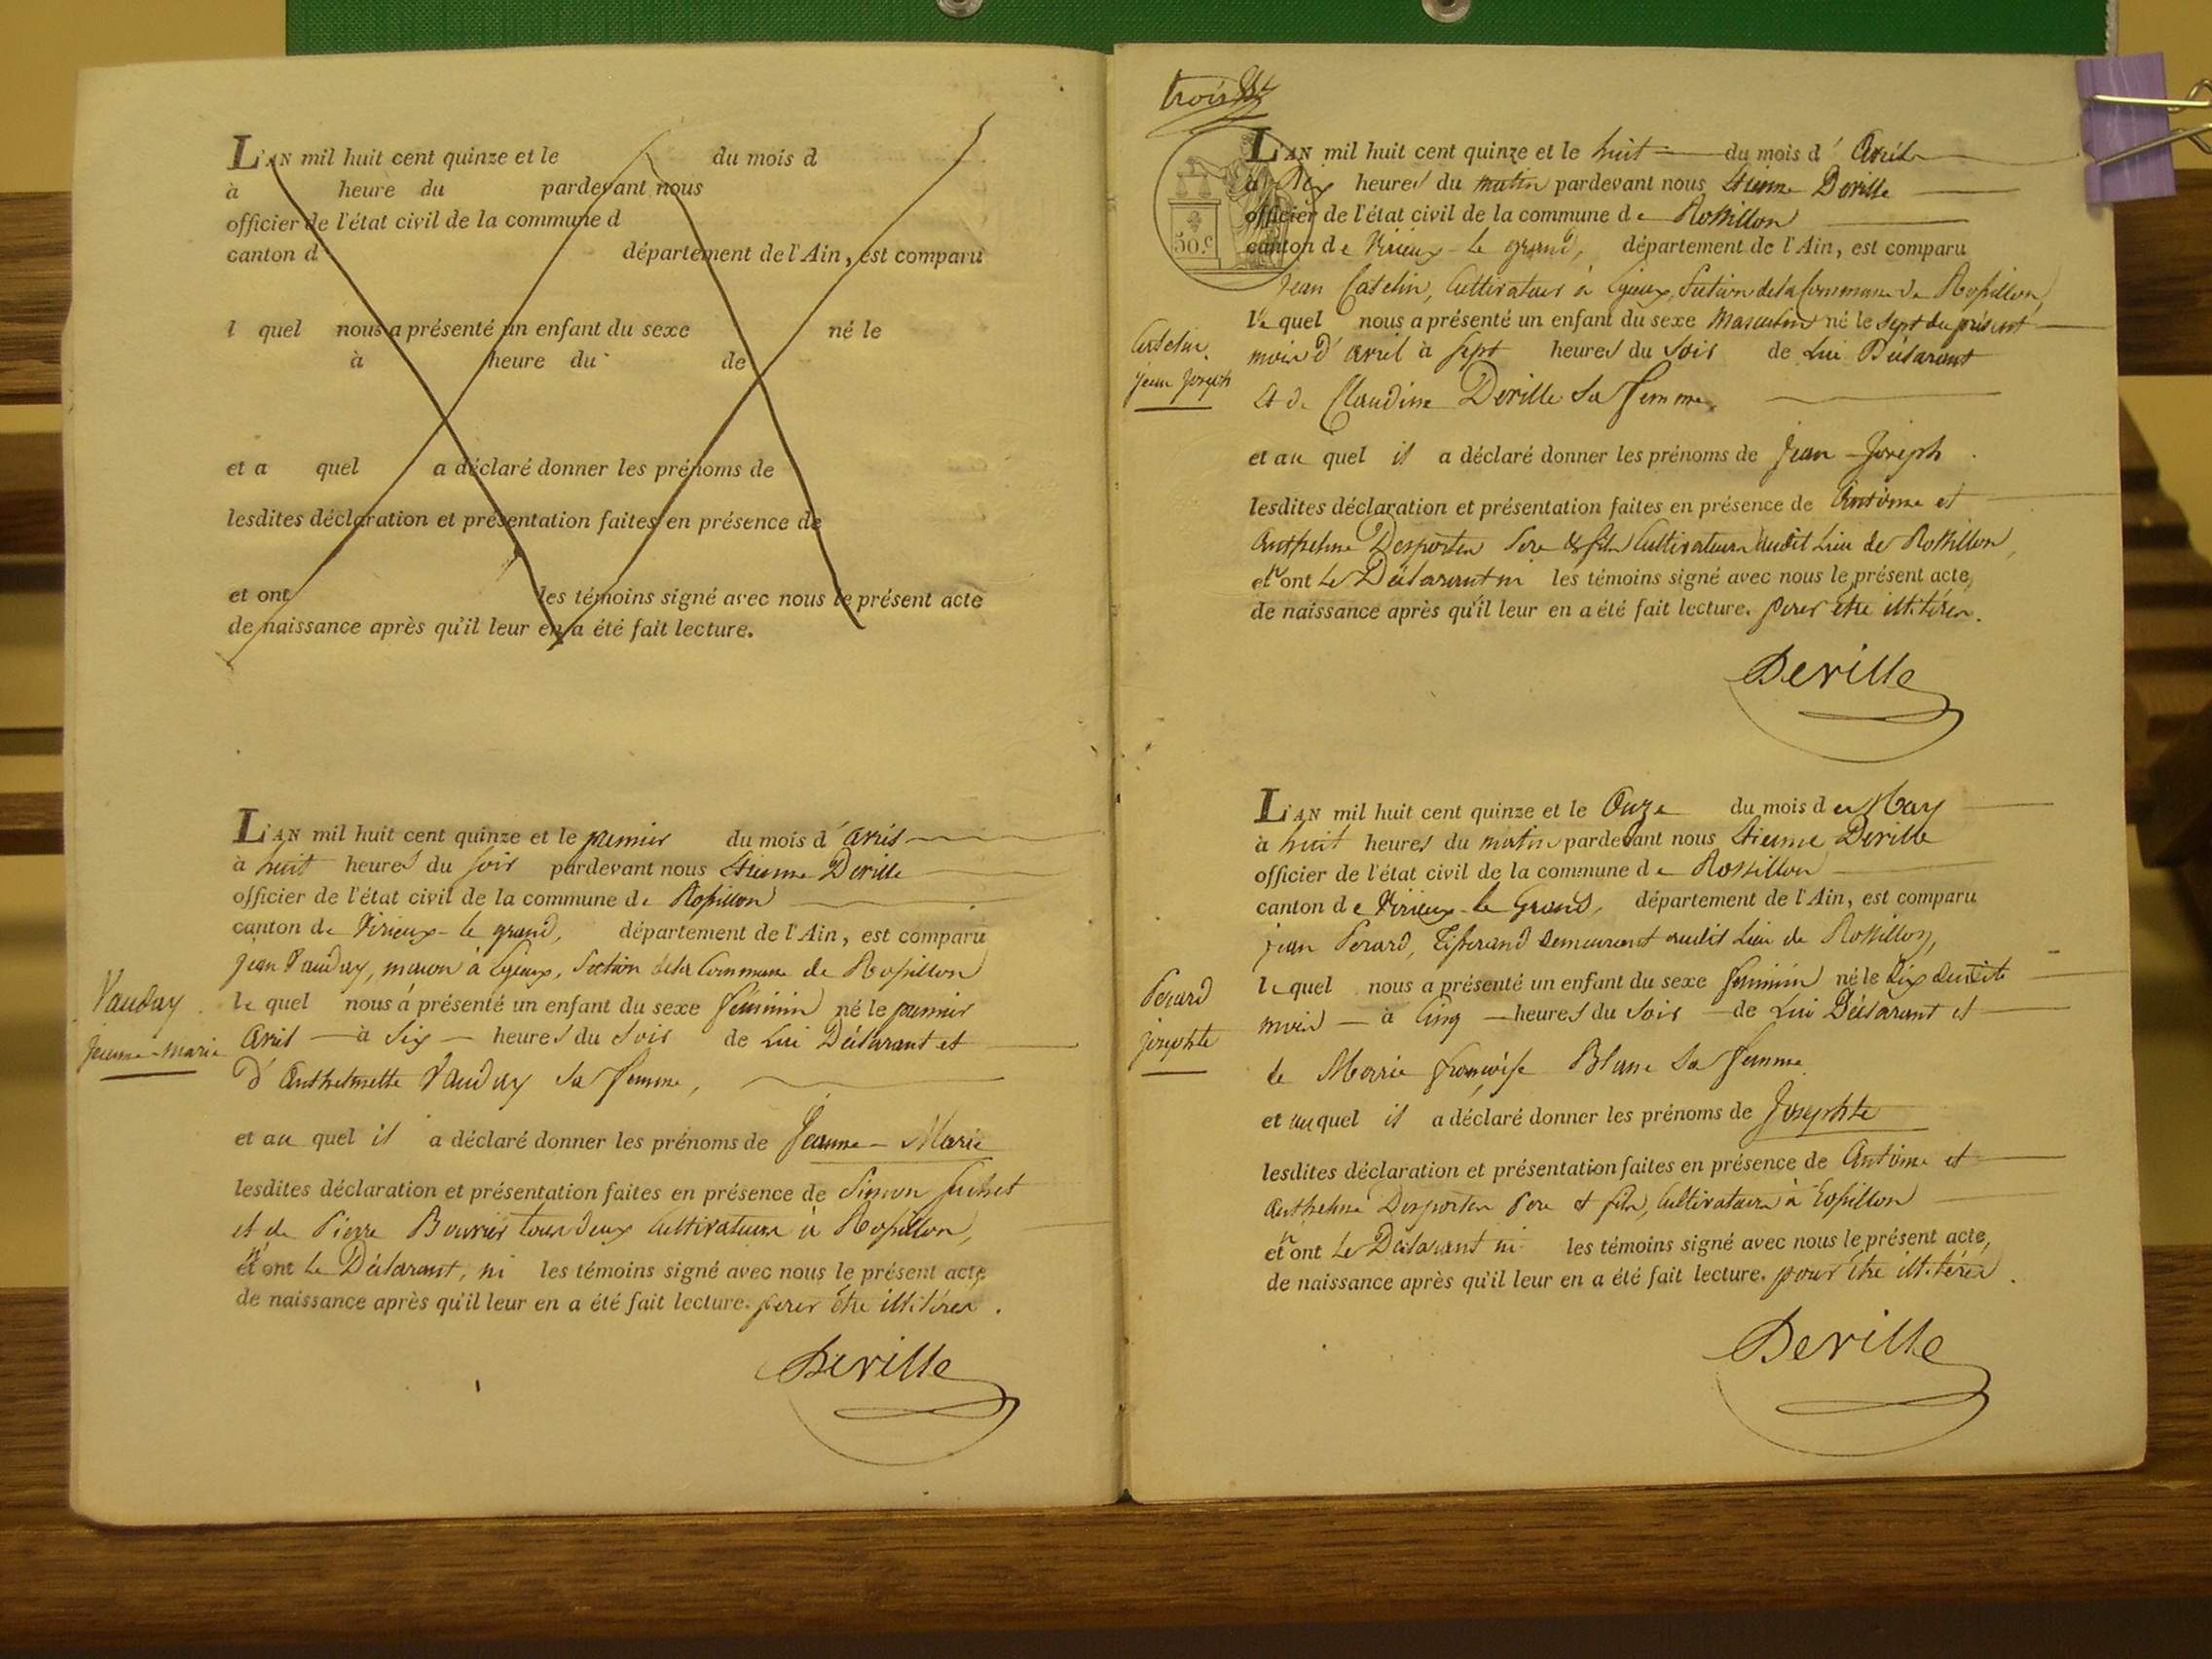 L'AN mil huit cent quinze et le du mois d
à heure du pardevant nous
officier de l'état civil de la commune d
canton d département de l'Ain, est comparu
l quel nous a présenté un enfant du sexe né le
à heure du de
et a quel a déclaré donner les prénoms de
lesdites déclaration et présentation faites en présence de
et ont les témoins signé avec nous le présent acte
de naissance après qu'il leur en a été fait lecture.
L'AN mil huit cent quinze et le premier du mois d'avril
à huit heures du soir pardevant nous Etienne Deville
officier de l'état civil de la commune de Rossillon
canton de Virieux-le grand, département de l'Ain, est comparu
jean Vauday, maçon à Egieux, Section de la Commune de Rossillon
Vauday
jeanne-marie
le quel nous a présenté un enfant du sexe féminin né le premier
avril à Six heures du soir de Lui Déclarant et
d'Anthelmette Vauday sa femme,
et au quel il a déclaré donner les prénoms de Jeanne-Marie
lesdites déclaration et présentation faites en présence de Simon
et de Pierre Bouvier tous deux Cultivateurs à Rossillon,
et n'ont le Déclarant, ni les témoins signé avec nous le présent acte
de naissance après qu'il leur en a été fait lecture. pour être illitérés.
Deville
trois
50c.
L'AN mil huit cent quinze et le huit du mois d'Avril
à Dix heures du matin pardevant nous Etienne Deville
officier de l'état civil de la commune de Rossillon
canton de Virieux-le grand, département de l'Ain, est comparu
Jean Catelin, Cultivateur à Egieux, Section de la Commune de Rossillon,
Catelin
jean joseph
le quel nous a présenté un enfant du sexe Masculin né le sept du présent
mois d'avril à sept heures du soir de Lui Déclarant
et de Claudine Deville sa femme.
et au quel il a déclaré donner les prénoms de Jean-Joseph.
lesdites déclaration et présentation faites en présence de Antoine et
Anthelme Desportes Père & fils Cultivateurs audit Lieu de Rossillon,
et n'ont Le Déclarant ni les témoins signé avec nous le présent acte,
de naissance après qu'il leur en a été fait lecture. pour être illitérés.
Deville
L'AN mil huit cent quinze et le Onze du mois de May
à huit heures du matin pardevant nous Etienne Deville
officier de l'état civil de la commune de Rossillon
canton de Virieux-le Grand, département de l'Ain, est comparu
jean Perard, Tisserand demeurant audit Lieu de Rossillon,
Perard
josephte
le quel nous a présenté un enfant du sexe féminin né le Dix dudit
mois à Cinq heures du soir de Lui Déclarant et
de Marie françoise Blanc sa femme
et auquel il a déclaré donner les prénoms de Josephte
lesdites déclaration et présentation faites en présence de Antoine et
Anthelme Desportes Père et fils, Cultivateurs à Rossillon
et n'ont Le Déclarant ni les témoins signé avec nous le présent acte,
de naissance après qu'il leur en a été fait lecture. pour être illitérés.
Deville